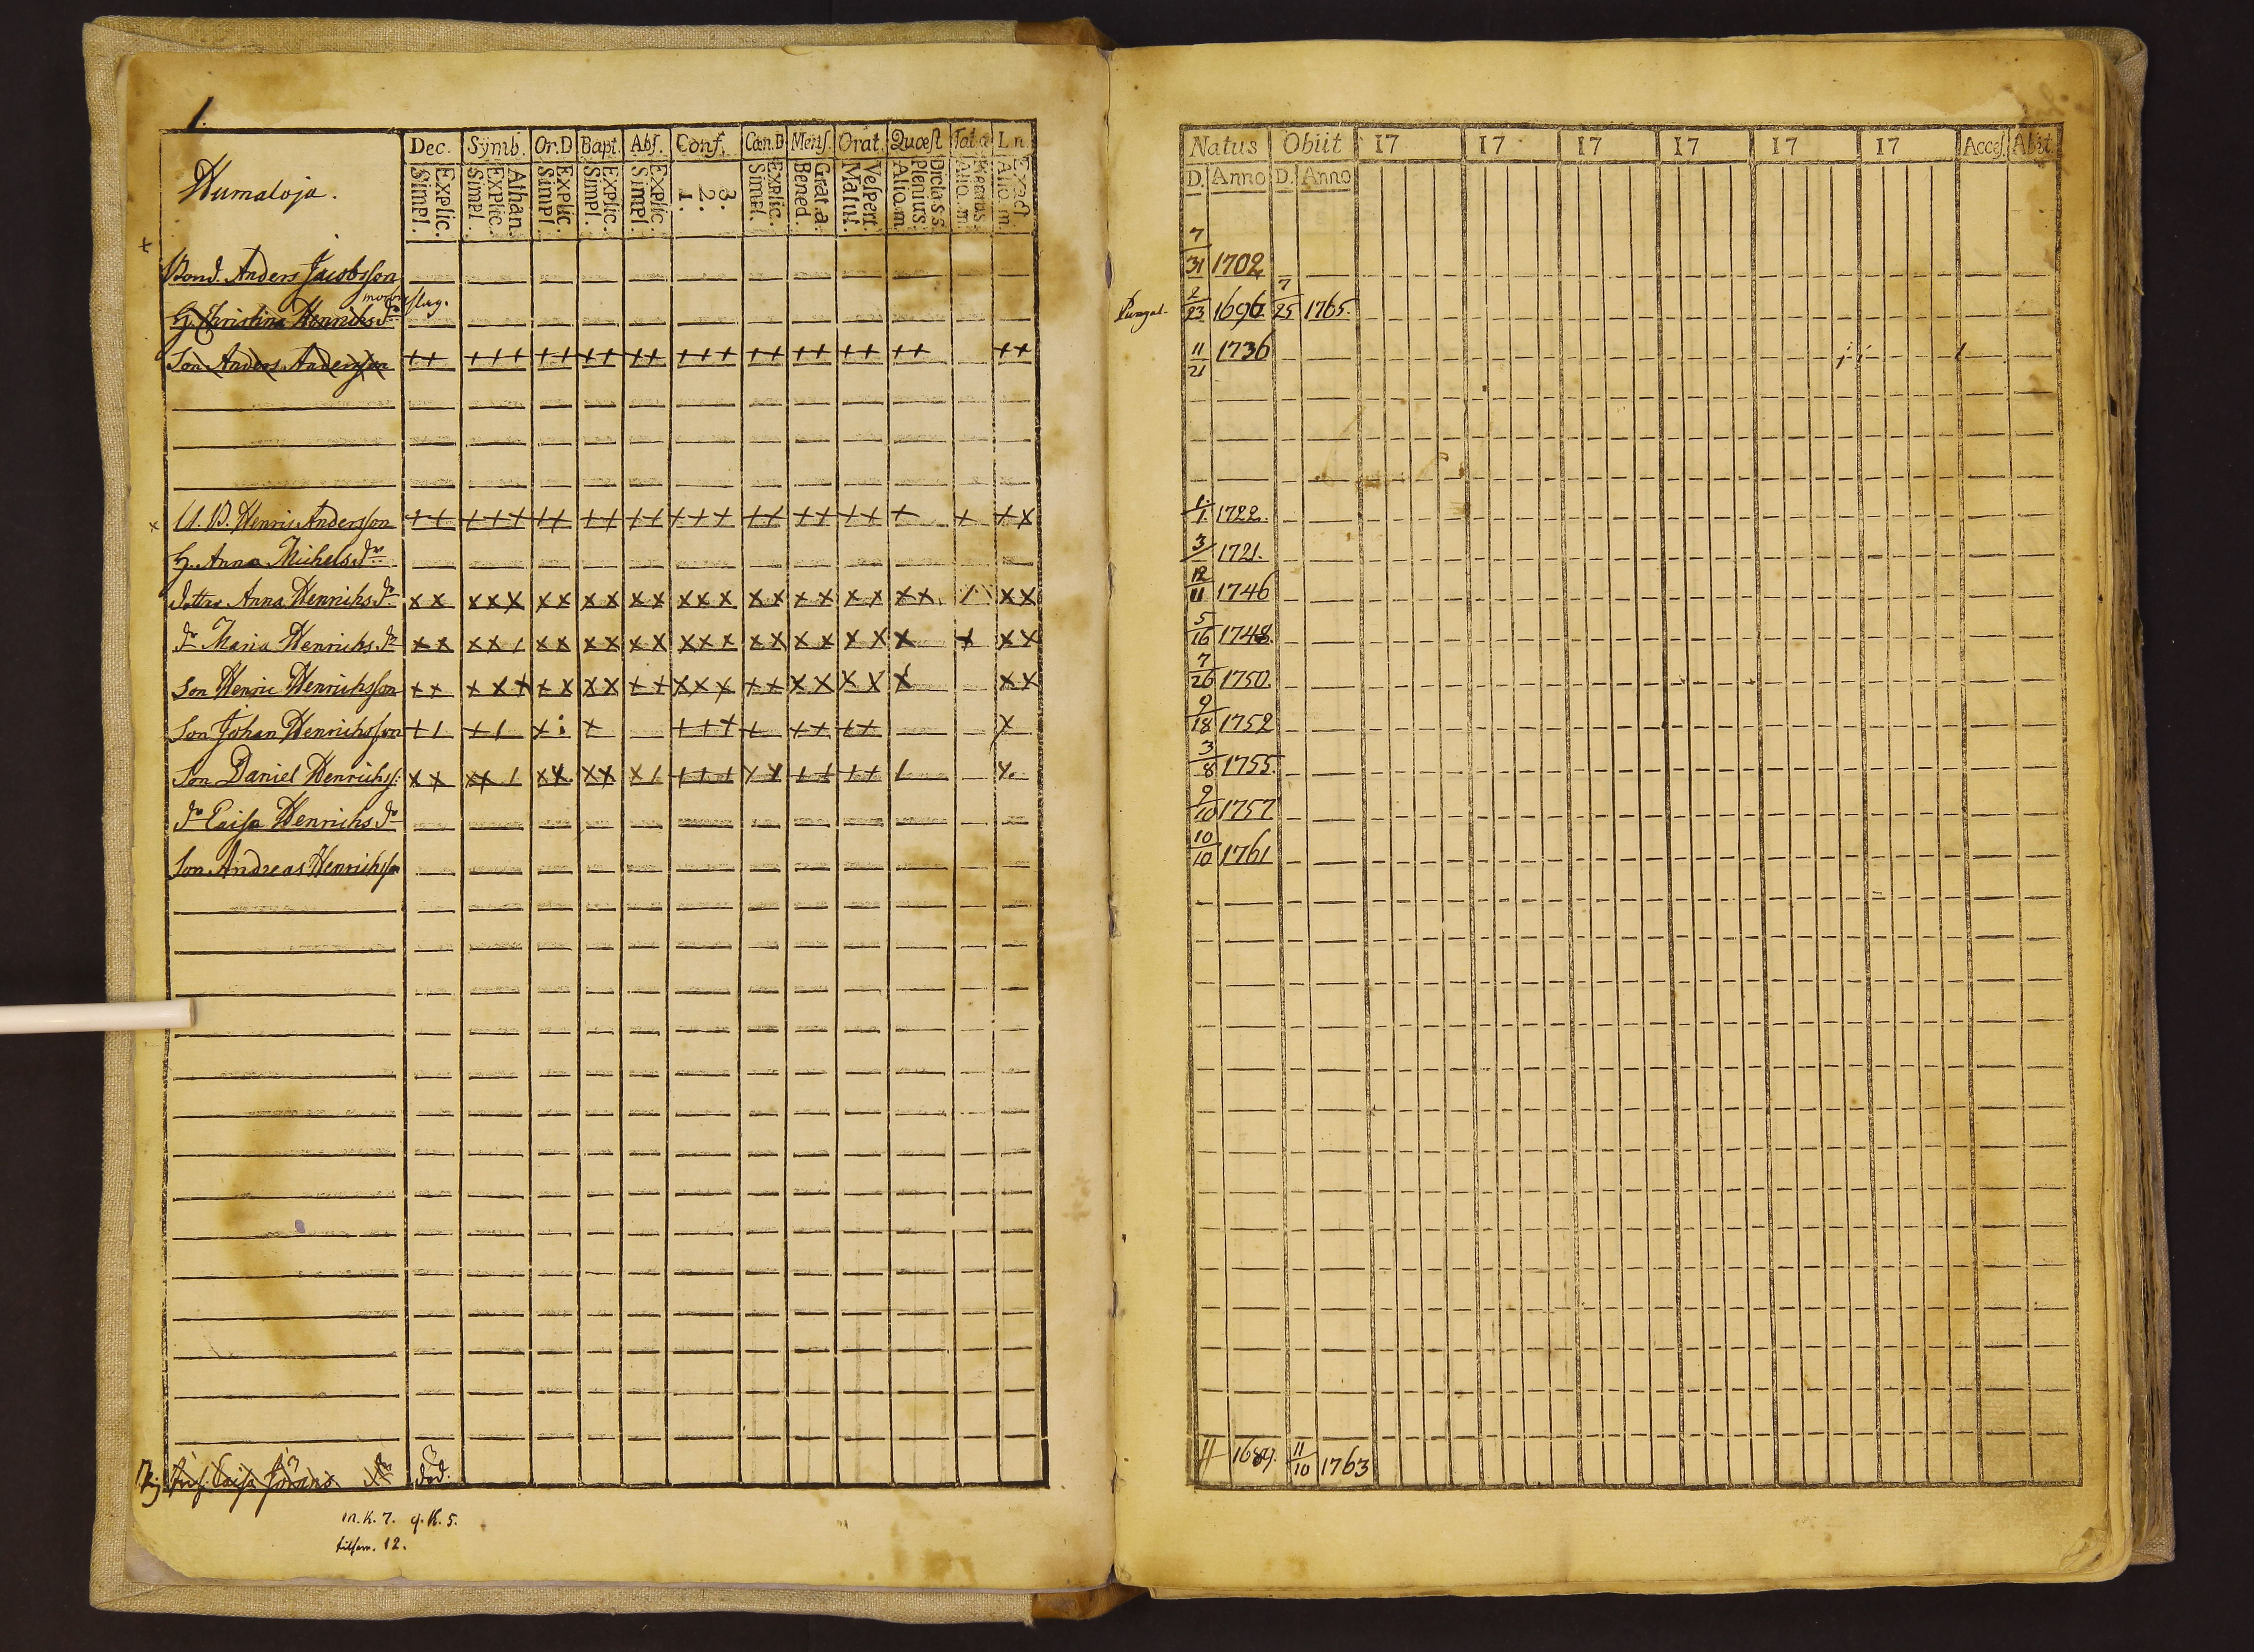 1.
Humaloja.
Dec. Symb. Or.D Bapt. Abs. Conf. Cœn.D Mens. Orat. Quæst Tota L n
Explic. Simpl. Athan. Explic. Simpl. Explic. Simpl. Explic. Simpl. Explic. Simpl. 3. 2. 1. Explic. Simpl. Grat.a. Bened. Vespert. Matut. Dictass. Plenius. Aliq.m. Plenius. Aliq.m. Exact Aliq.m.
+
Bond. Anders Jacobsson
H. Christina Henrichs dr
Son Anders Andersson ++ +++ ++ ++ ++ +++ ++ ++ ++ ++ ++
x U. B. Henric Andersson ++ +++ ++ ++ ++ +++ ++ ++ ++ + + +x
H. Anna Michels dr
dottr Anna Henrichs dr xx xxx xx xx xx xxx xx xx xx xx / xx
dr Maria Henrichs dr xx xx/ xx xx xx xxx xx xx xx x x xx
Son Henric Henrichsson ++ +x+ +x xx ++ xxx ++ xx xx x xx
Son Johan Henrichsson +/ +/ x: + +++ + ++ ++ x
Son Daniel Henrichs: xx xx/ xx xx x/ +++ xx ++ ++ / x.
dr Caisa Henrichs dr
Son Andreas Henrichsson
Caisa Görans dr död.
m.K. 7. q.K. 5.
tilsam. 12.
Natus Obiit 17 17 17 17 17 17 Acces. Abit.
D. Anno D. Anno
7/31 1702
2/23 1696 7/25 1765.
11/21 1736
1/1. 1722.
3/ 1721.
12/11 1746
5/16 1748.
7/26 1750.
9/18 1752
3/8 1755.
9/10 1757
10/10 1761
11/10 1763